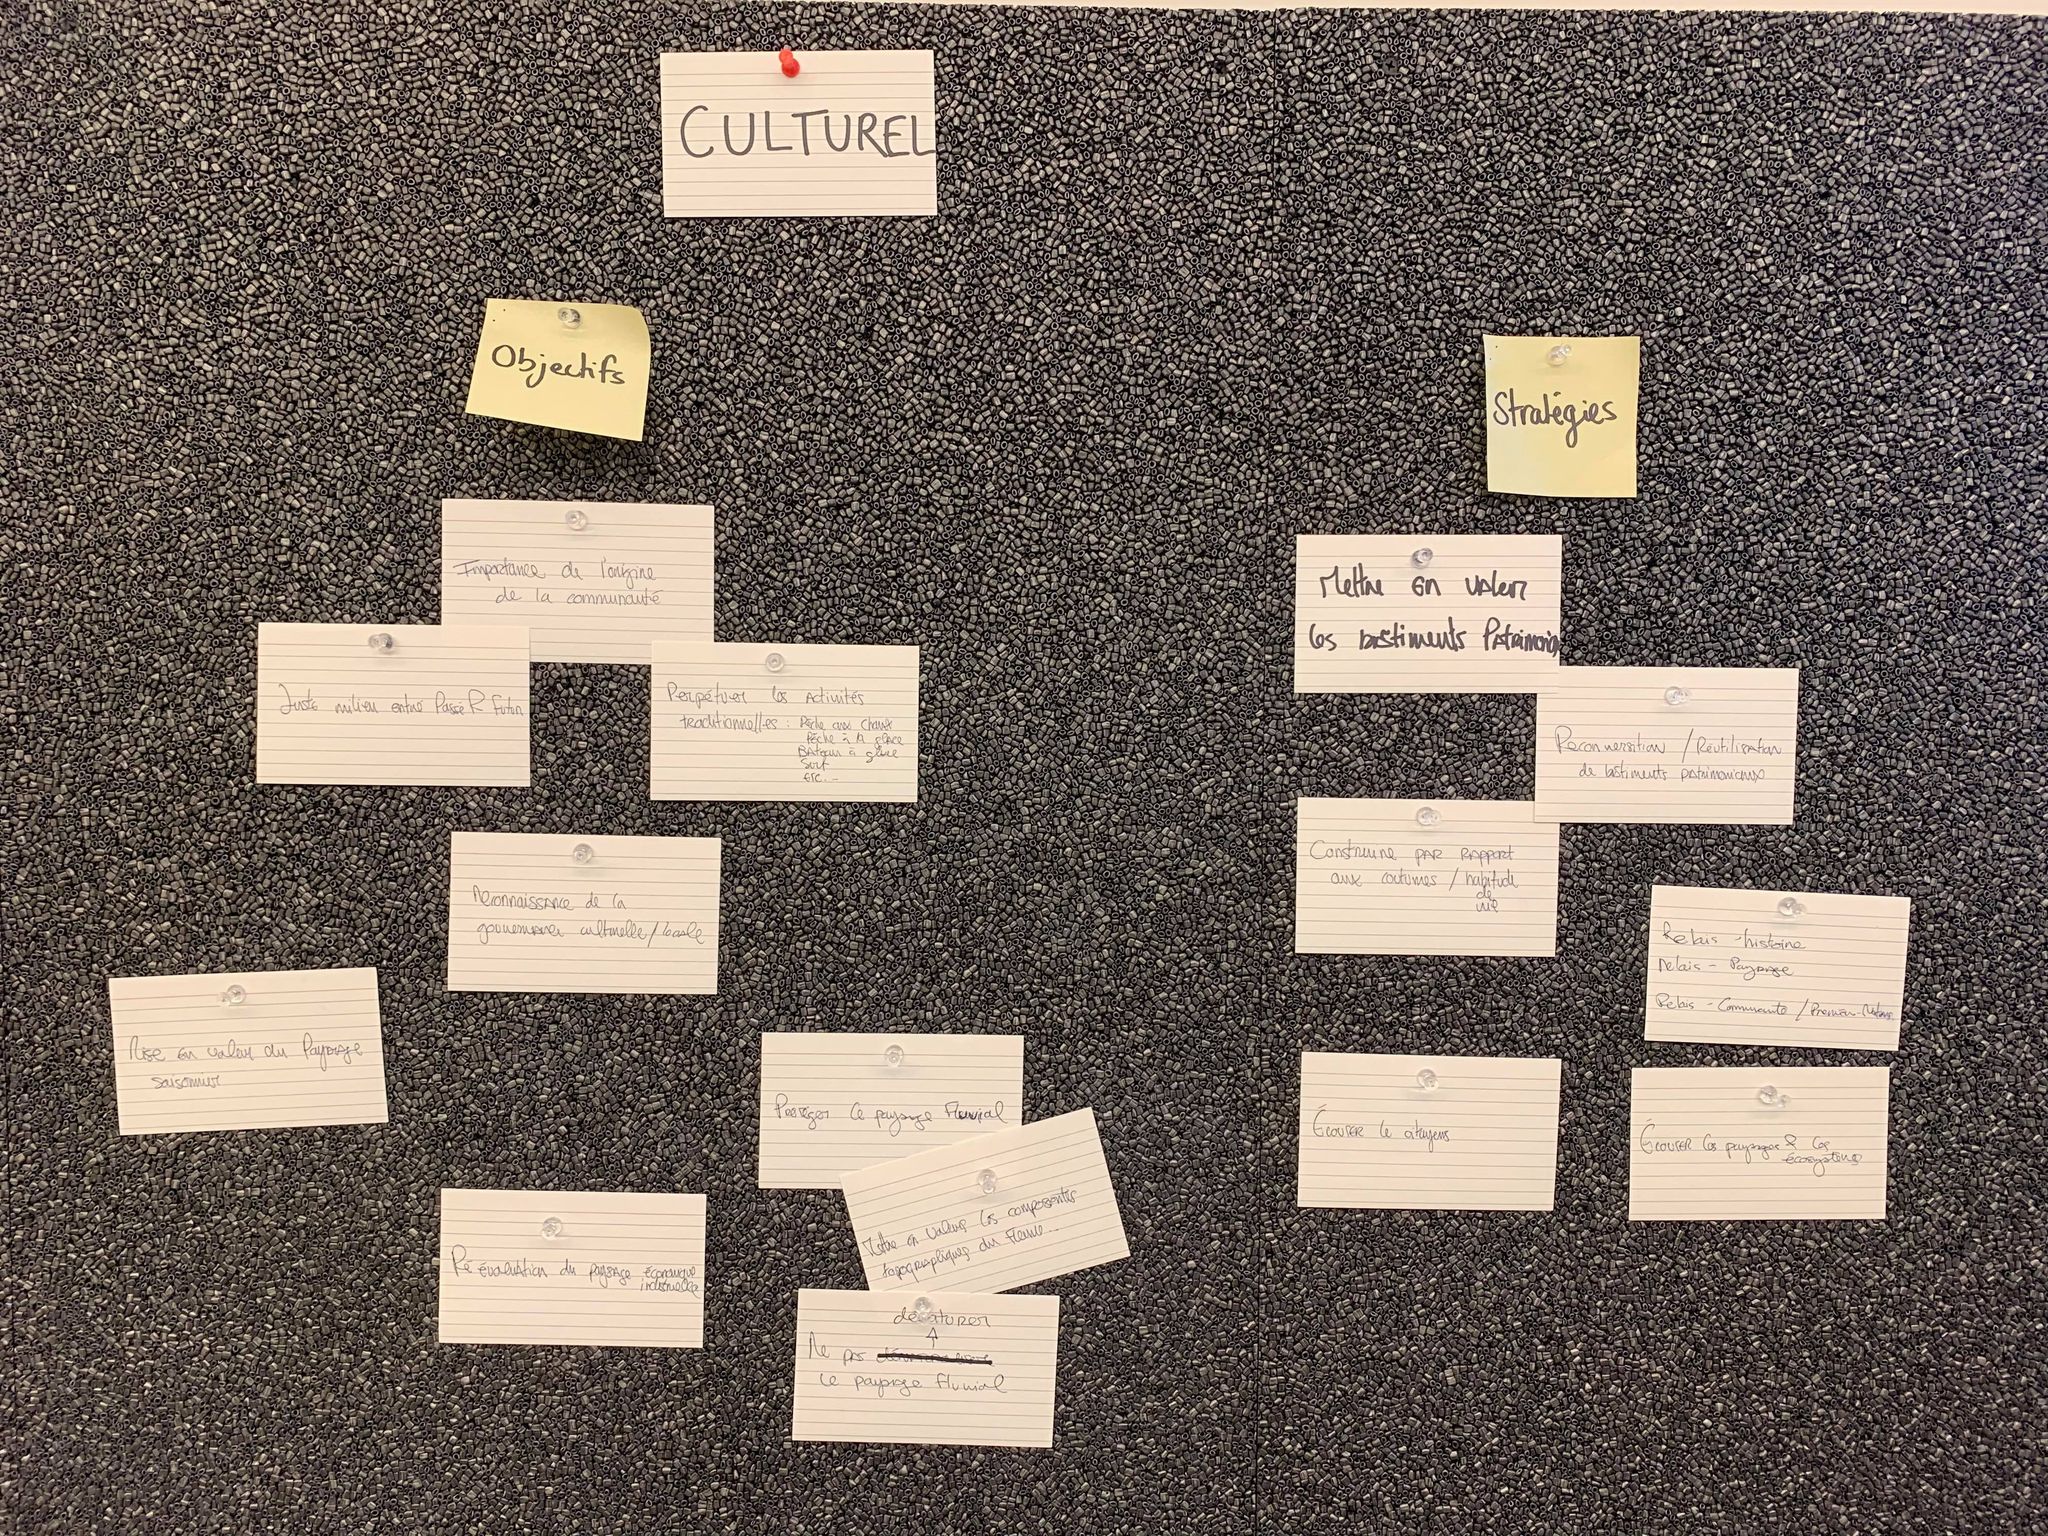 CULTUREL
Objectifs
Importance de l'origine
de la communauté
Juste milieu entre Passé & Futur
Perpétuer les Activités
traditionnelles : Pêche aux
Pêche à la glace
Bateau à glace
Surf
etc...
Reconnaissance de la
gouvernance culturelle/locale
Mise en valeur du Paysage
saisonnier
Protéger le paysage Fluvial
Mettre en valeur les composantes
topographiques du Fleuve...
Ré évaluation du paysage économique
industrielle
dénaturer
Ne pas
le paysage fluvial
Stratégies
Mettre en valeur
les bâtiments Patrimoniaux
Reconversition / Réutilisation
de bâtiments patrimoniaux
Construire par rapport
aux coutumes / habitude
de
vie
Relais - histoire
Relais - Paysage
Relais - Communauté / Premier-Nations
Écouter le citoyens
Écouter les paysages & les
écosystèmes